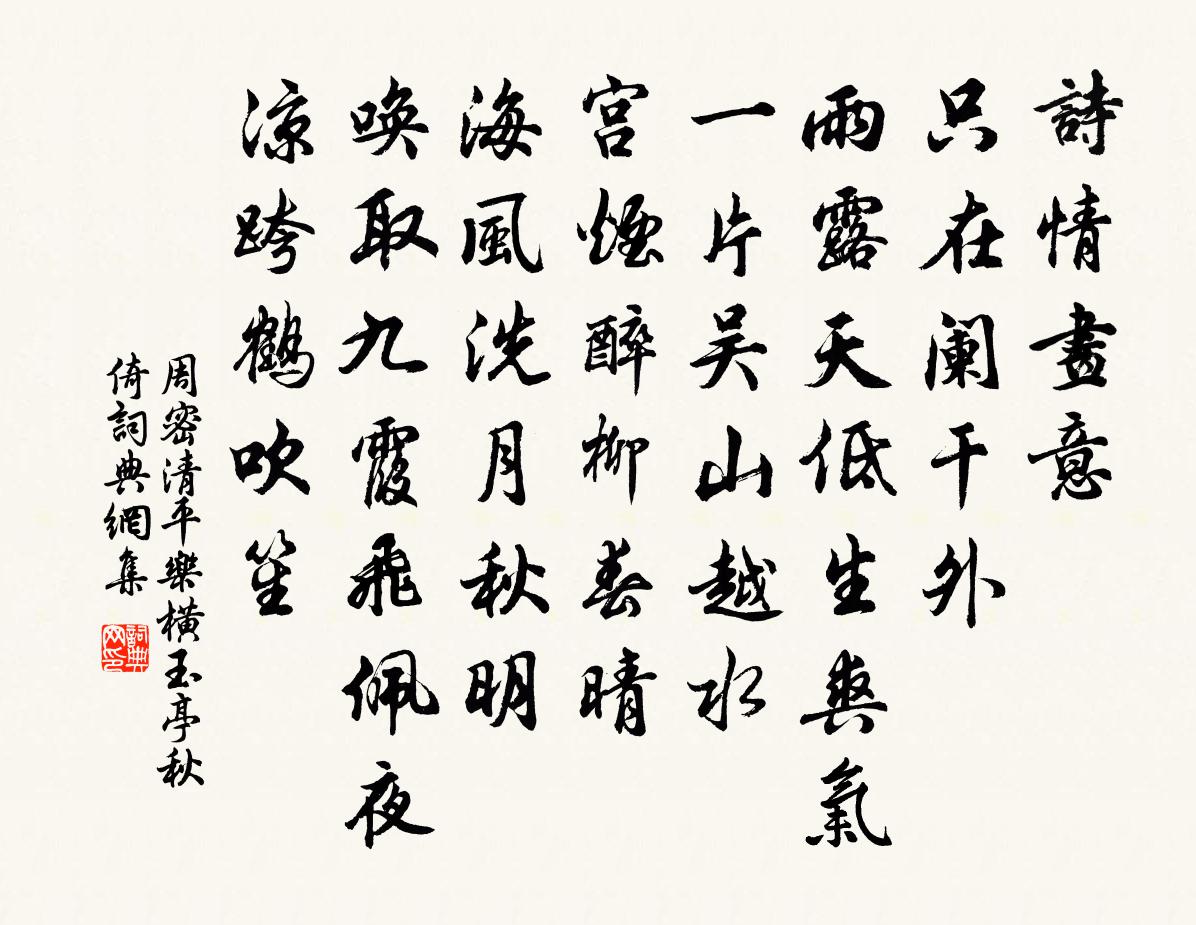 詩情畫意
只在闌干外
雨露天低生爽氣
一片吴山越水
宫煙醉柳春晴
海風洗月秋明
唤取九霞飛佩夜
凉跨鶴吹笙
周密清平樂横玉亭秋
倚詞典網集
詞典
网印